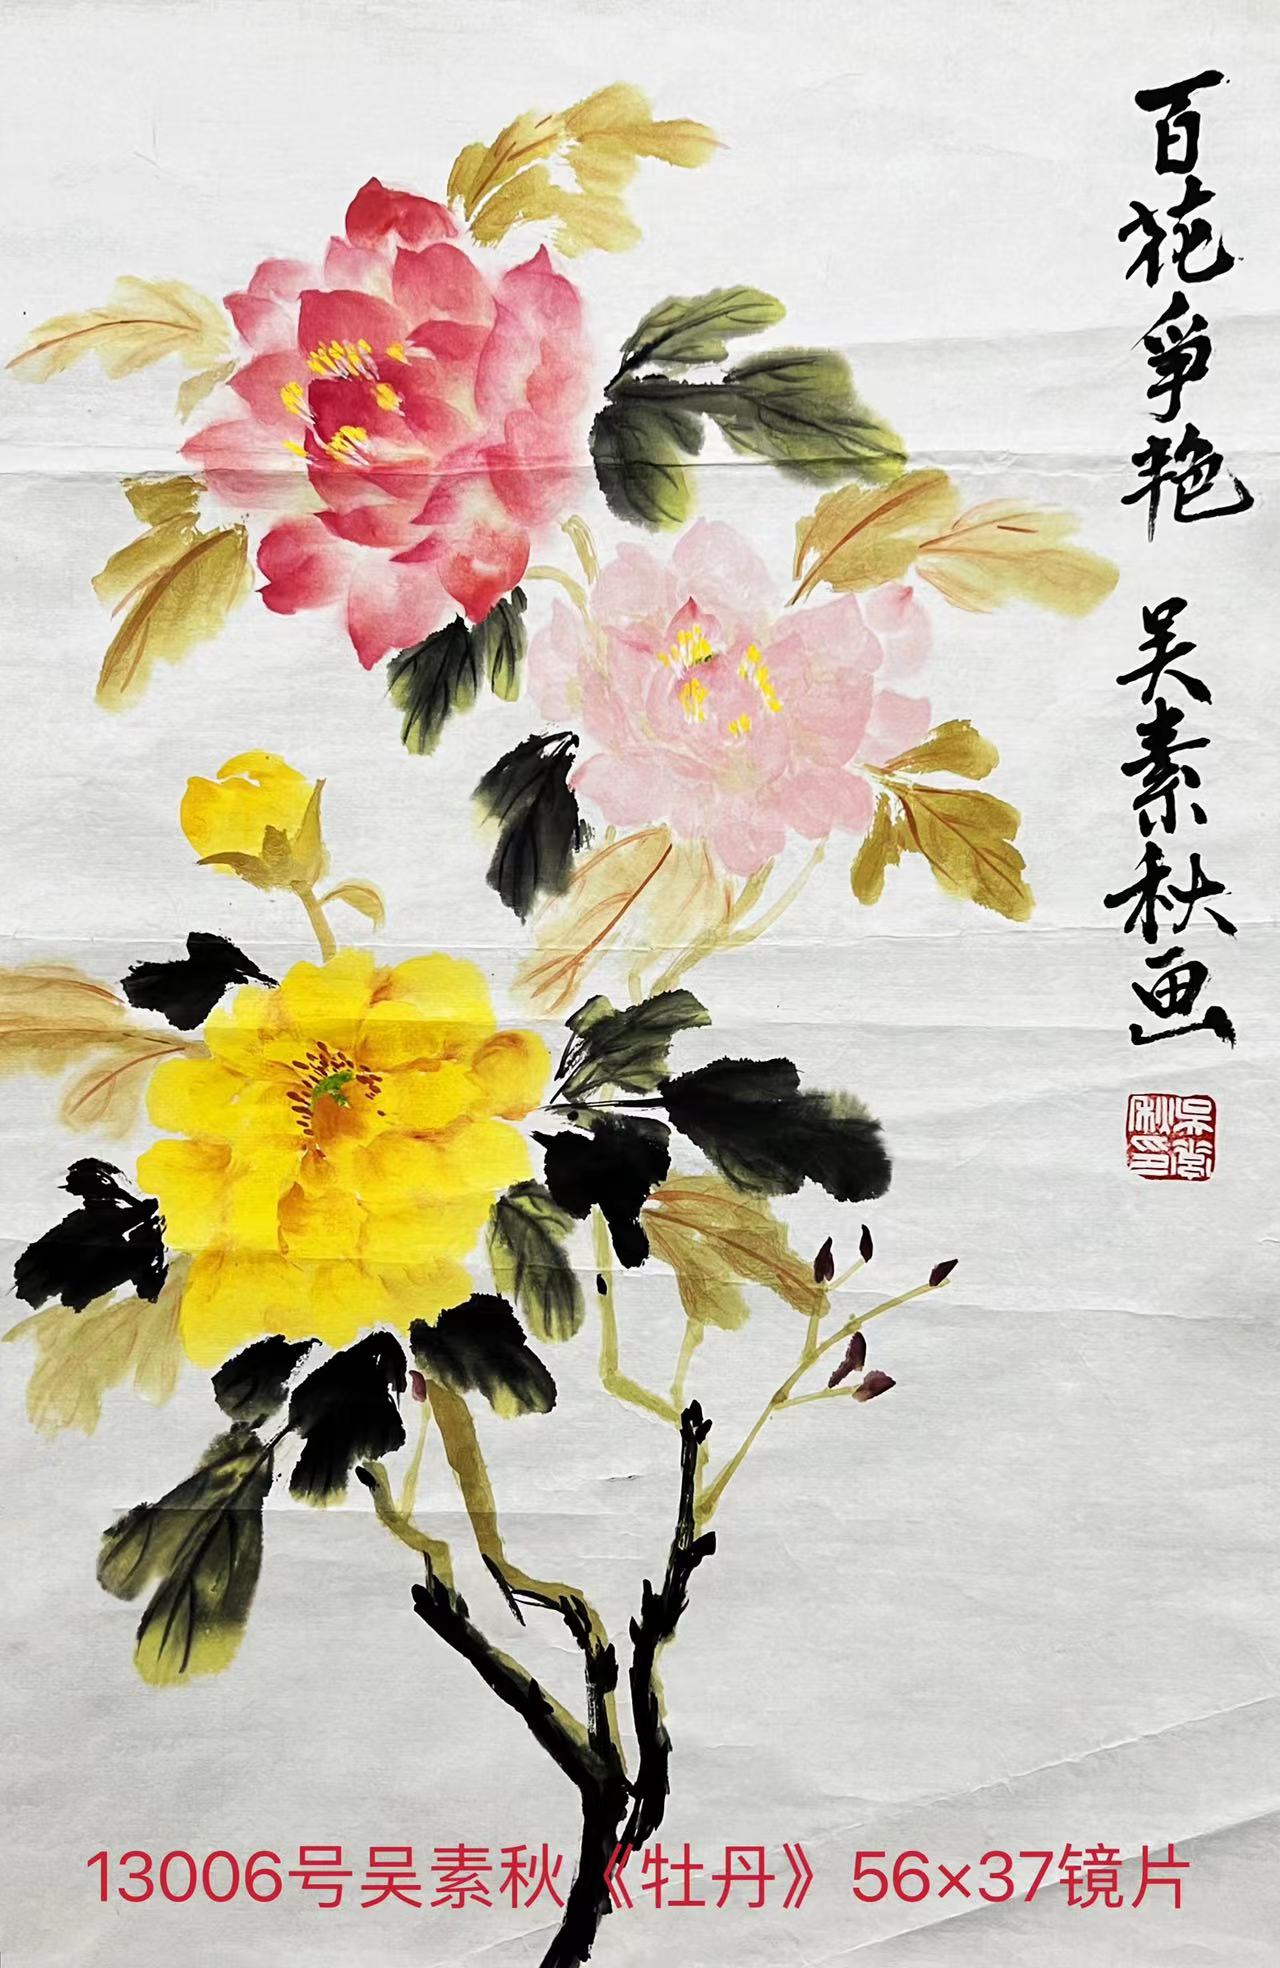 百花争艳 吴素秋画
吴素秋印
13006号吴素秋《牡丹》56×37镜片